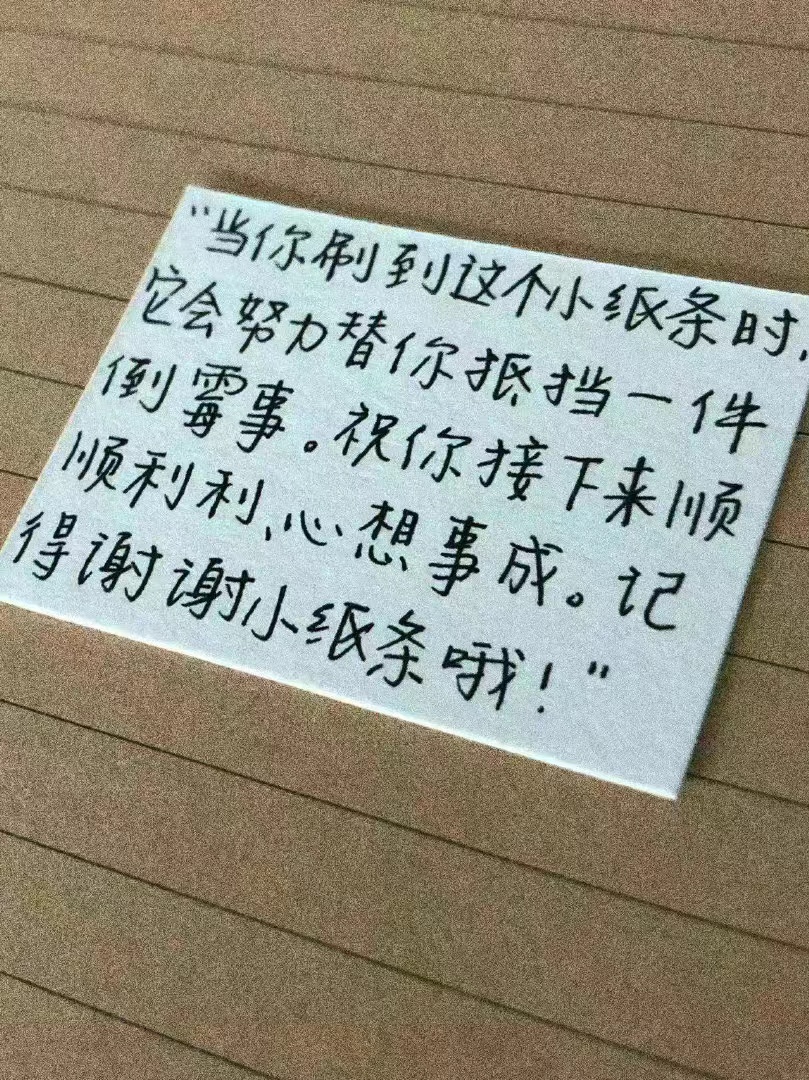 “当你刷到这个小纸条时,
它会努力替你抵挡一件
倒霉事。祝你接下来顺
顺利利、心想事成。记
得谢谢小纸条哦!”